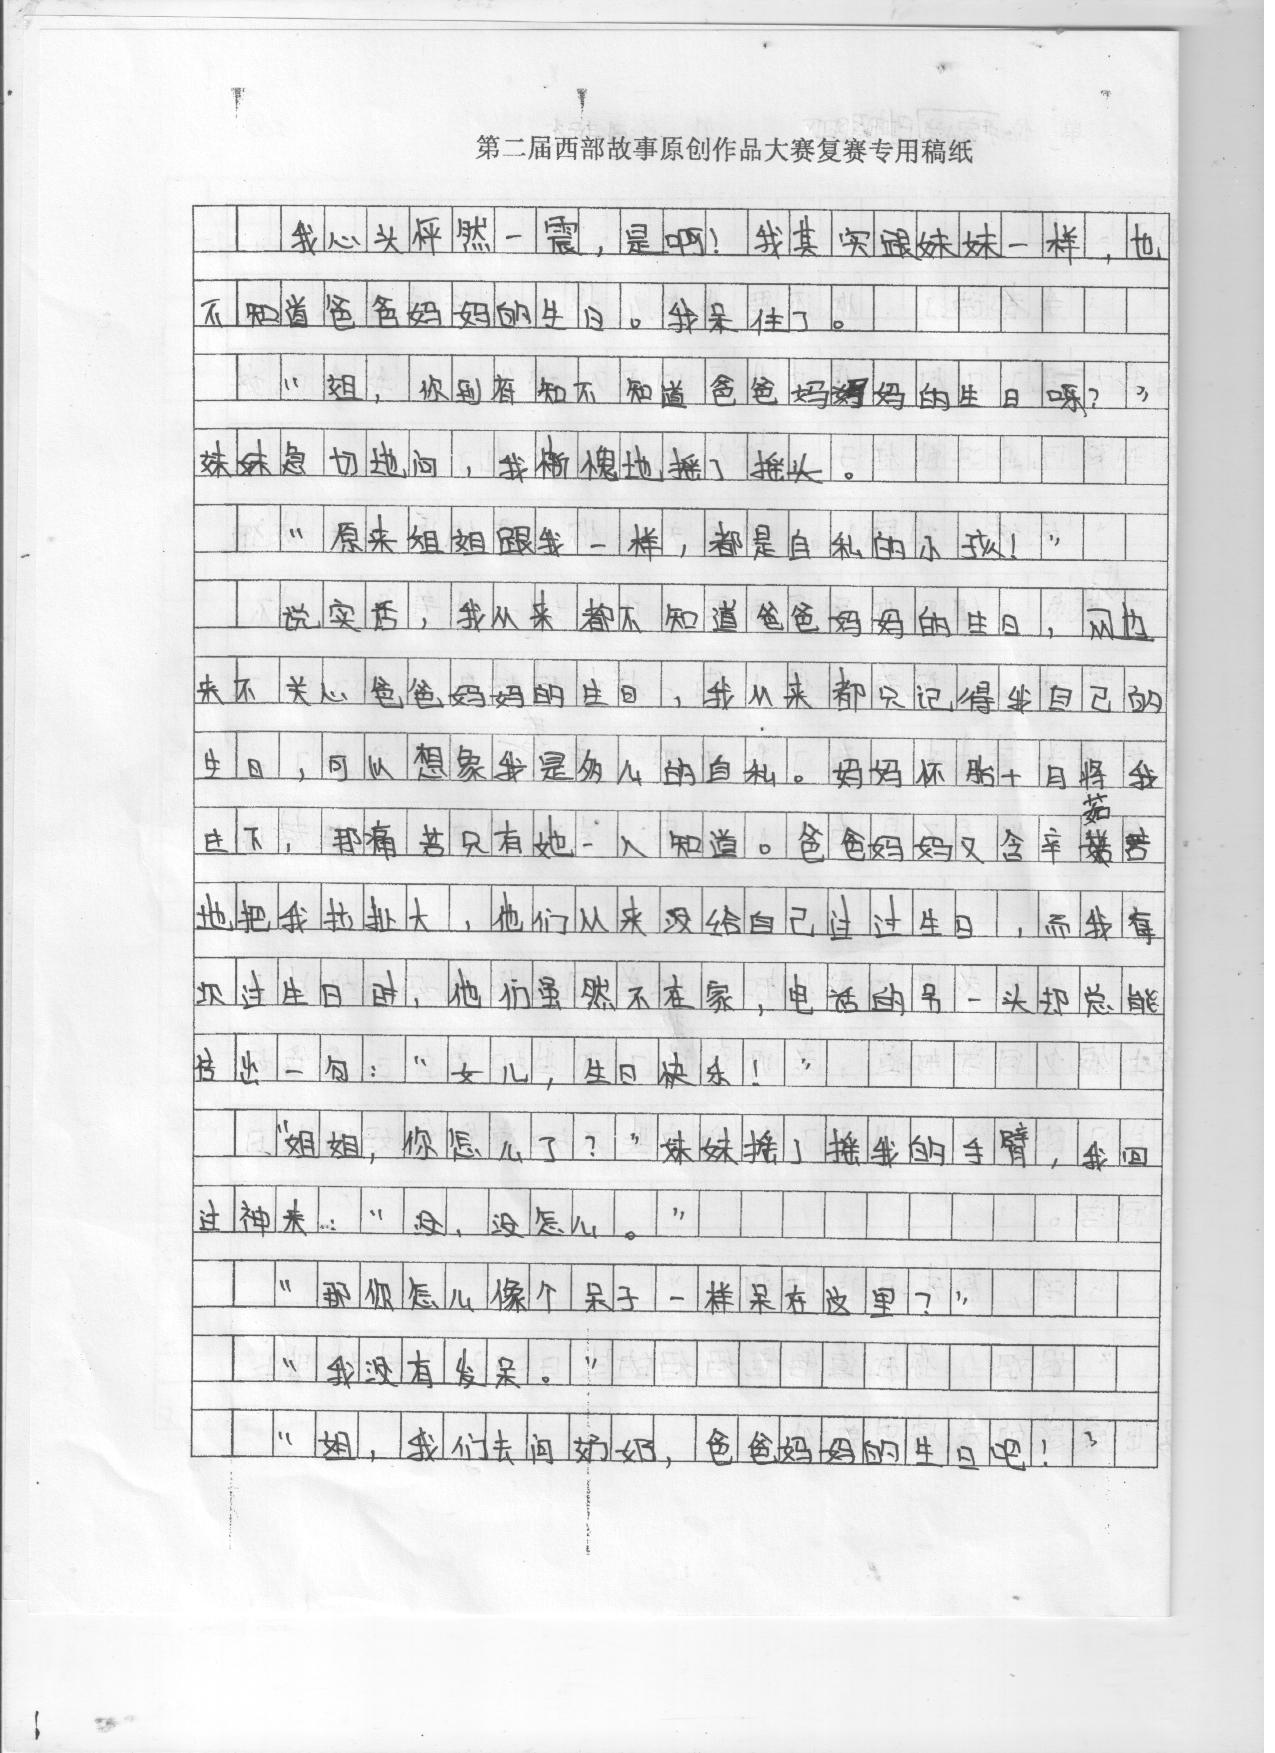 第二届西部故事原创作品大赛复赛专用稿纸
我心头怦然一震，是啊！我其实跟妹妹一样，也
不知道爸爸妈妈的生日。我呆住了。
“姐，你到底知不知道爸爸妈妈的生日呀？”
妹妹急切地问，我惭愧地摇了摇头。
“原来姐姐跟我一样，都是自私的小孩！”
说实话，我从来都不知道爸爸妈妈的生日，从也
来不关心爸爸妈妈的生日，我从来都只记得我自己的
生日，可以想象我是多么的自私。妈妈怀胎十月将我
生下，那痛苦只有她一人知道。爸爸妈妈又含辛茹苦
地把我拉扯大，他们从来没给自己过过生日，而我每
次过生日时，他们虽然不在家，电话的另一头却总能
传出一句：“女儿，生日快乐！”
“姐姐，你怎么了？”妹妹摇了摇我的手臂，我回
过神来：“没，没怎么。”
“那你怎么像个呆子一样呆在这里？”
“我没有发呆。”
“姐，我们去问奶奶，爸爸妈妈的生日吧！”